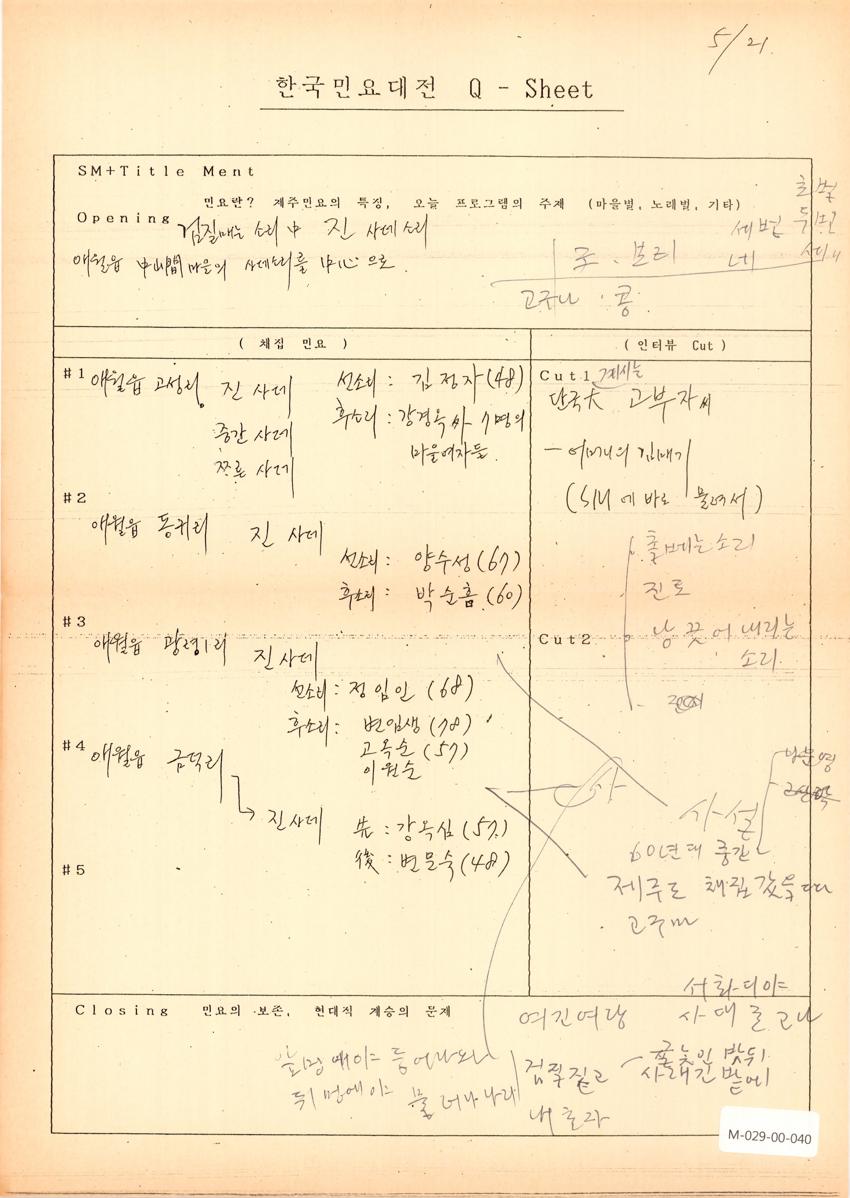 5/21.
한국민요대전 Q - Sheet
SM+Title Ment
민요란? 제주민요의 특징, 오늘 프로그램의 주제 (마을별, 노래별, 기타)
Opening 검질매는 소리 中 진 사데소리
애월읍 中山間 마을의 사데소리를 中心으로.
초벌
두벌
세벌
네
조. 보리
고구마. 콩
( 채집 민요 )
#1 애월읍 고성리 진 사데 선소리: 김정자(48)
중간 사데 후소리: 강경옥 7명의
쯔른 사데 마을여자들.
#2
애월읍 동귀리 진 사데
선소리: 양수성(67)
후소리: 박순홈(60)
#3
애월읍 광령1리 진사데
선소리: 정임인(68)
후소리: 변임생(78)
고옥순(57)
이원순
#4 애월읍 금덕리
진사데 先: 강옥심(57)
後: 변문숙(48)
#5
( 인터뷰 Cut )
Cut1
단국大 고부자씨
- 어머니의 김매기
(S/N 에 바로 물려서)
촐베는소리
진토
낭 끗어 내리는
소리.
Cut2
사
사설
60년대 중간
제주도 채집
고구마
Closing 민요의 보존, 현대적 계승의 문제
서화디야
여긴여랑 사데로고나
앞멍에야 들어나오라
뒤멍에야 물러나나라
검질짇고
굴늦인 밧듸
사래긴밭에
M-029-00-040